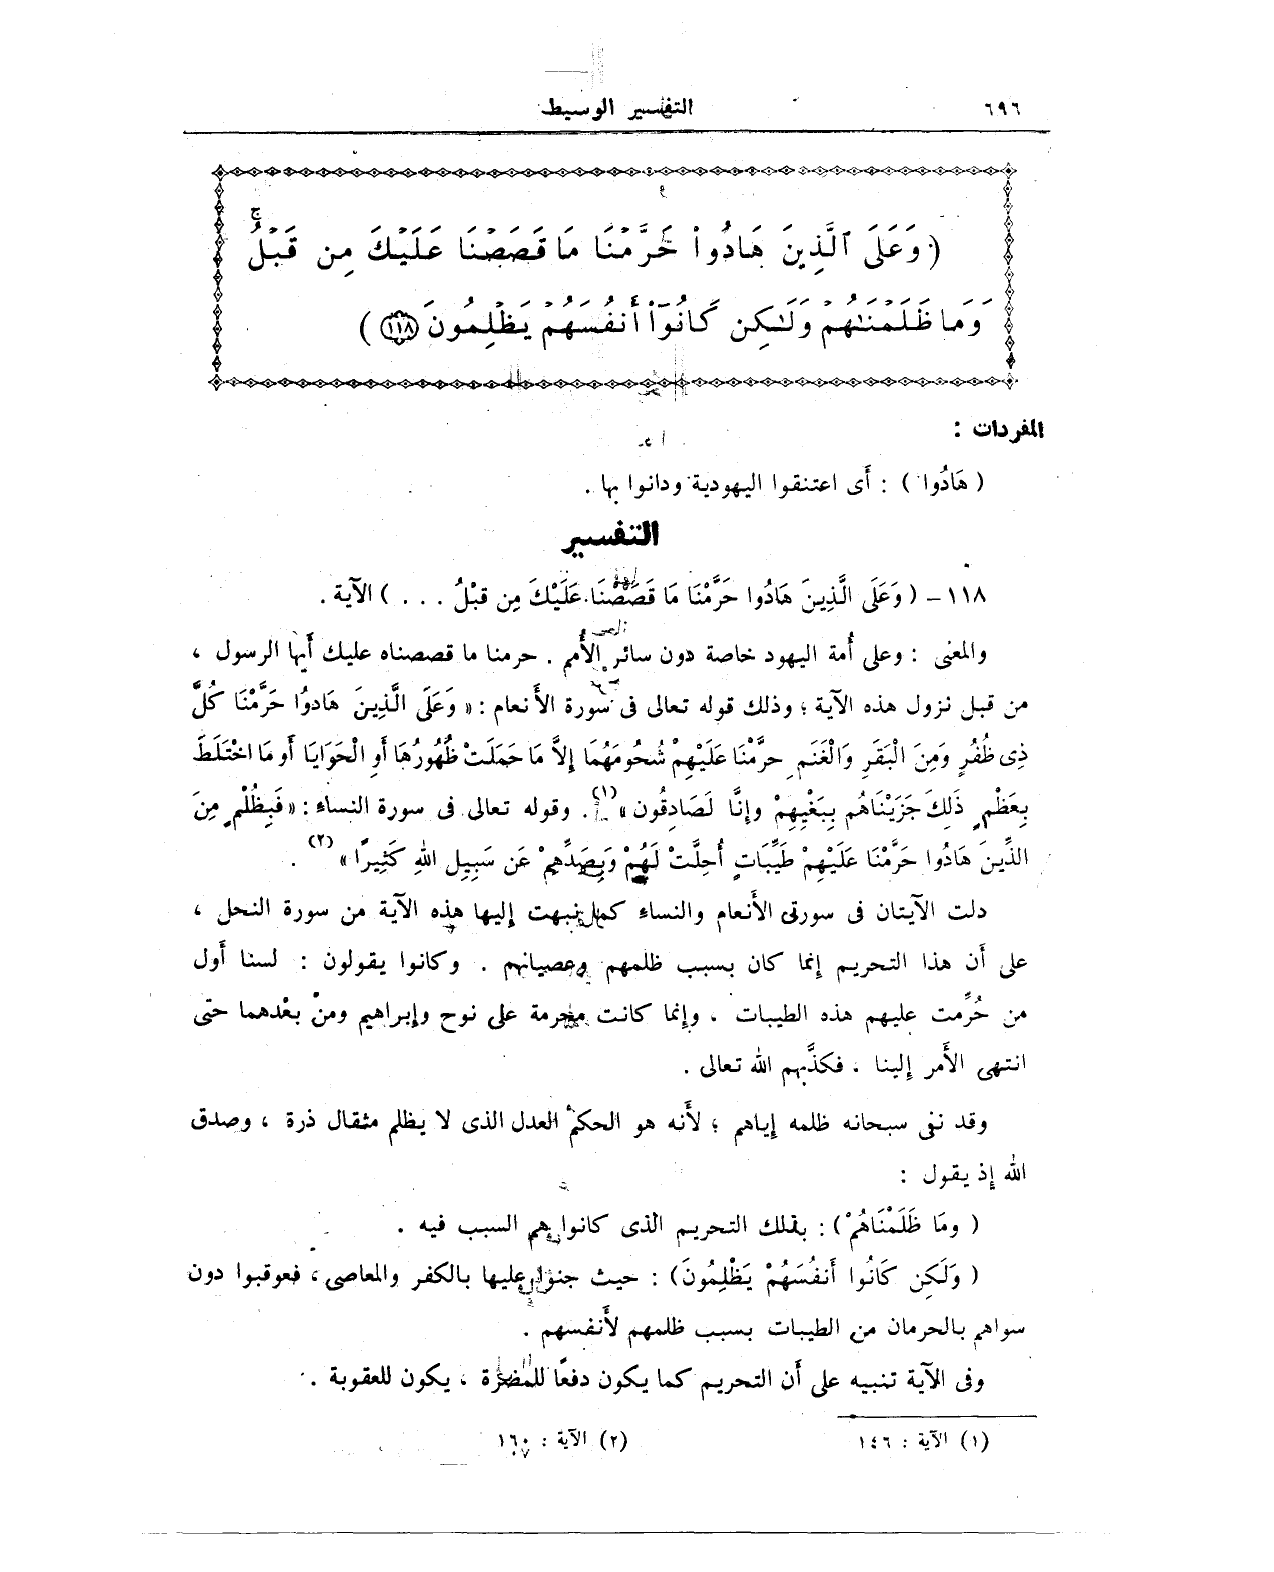 ٦٩٦
التفسير الوسيط
( وَعَلَى ٱلَّذِينَ هَادُوا۟ حَرَّمْنَا مَا قَصَصْنَا عَلَيْكَ مِن قَبْلُ
وَمَا ظَلَمْنَٰهُمْ وَلَٰكِن كَانُوٓا۟ أَنفُسَهُمْ يَظْلِمُونَ ١١٨ )
المفردات :
( هَادُوا ) : أَى اعتنقوا اليهودية ودانوا بها .
التفسير
١١٨ – ( وَعَلَى الَّذِينَ هَادُوا حَرَّمْنَا مَا قَصَصْنَا عَلَيْكَ مِن قبْلُ . . . ) الآية .
والمعنى : وعلى أُمة اليهود خاصة دون سائر الأُمم . حرمنا ما قصصناه عليك أَيها الرسول ،
من قبل نزول هذه الآية ؛ وذلك قوله تعالى فى سورة الأَنعام : « وَعَلَى الَّذِينَ هَادوُا حَرَّمْنَا كُلَّ
ذِى ظُفُرٍ وَمِنَ الْبَقَرِ وَالْغَنَمِ حرَّمْنَا عَلَيْهِمْ شُحُومَهُمَا إِلاَّ مَا حَمَلَتْ ظُهُورُهَا أَوِ الْحَوَايَا أَو مَا اخْتَلَطَ
بِعَظْمٍ ذَلِكَ جَزَيْنَاهُم بِبَغْيِهِمْ وإِنَّا لَصَادِقُون » (١) . وقوله تعالى فى سورة النساء : « فَبِظُلْمٍ مِنَ
الَّذِينَ هَادُوا حَرَّمْنَا عَلَيْهِمْ طَيِّبَاتٍ أُحِلَّتْ لَهُمْ وَبِصَدِّهِمْ عَن سَبِيلِ اللهِ كَثِيرًا » (٢) .
دلت الآيتان فى سورتى الأَنعام والنساء كما نبهت إليها هذه الآية من سورة النحل ،
على أَن هذا التحريم إنما كان بسبب ظلمهم وعصيانهم . وكانوا يقولون : لسنا أَول
من حُرِّمت عليهم هذه الطيبات . وإنما كانت محرمة على نوح وإبراهيم ومنْ بعْدهما حتى
انتهى الأَمر إلينا . فكذَّبهم الله تعالى .
وقد نفى سبحانه ظلمه إياهم ؛ لأَنه هو الحكم العدل الذى لا يظلم مثقال ذرة ، وصدق
الله إذ يقول :
( ومَا ظَلَمْنَاهُمْ ) : بذلك التحريم الذى كانوا هم السبب فيه .
( وَلَكِن كَانُوا أَنفُسَهُمْ يَظْلِمُونَ ) : حيث جنوا عليها بالكفر والمعاصى ، فعوقبوا دون
سواهم بالحرمان من الطيبات بسبب ظلمهم لأَنفسهم .
وفى الآية تنبيه على أَن التحريم كما يكون دفعًا للمضرة ، يكون للعقوبة .
(١) الآية : ١٤٦
(٢) الآية : ١٦٠